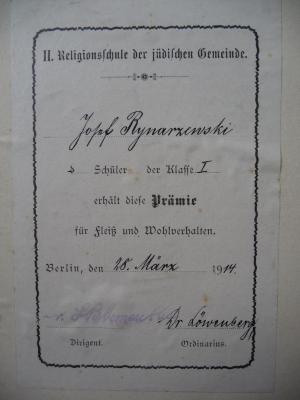 II. Religionsschule der jüdischen Gemeinde.
Josef Rynarzewski
d Schüler der Klasse I
erhält diese Prämie
für Fleiß und Wohlverhalten.
Berlin, den 28. März 1914.
Dr Löwenberg
Dirigent. Ordinarius.